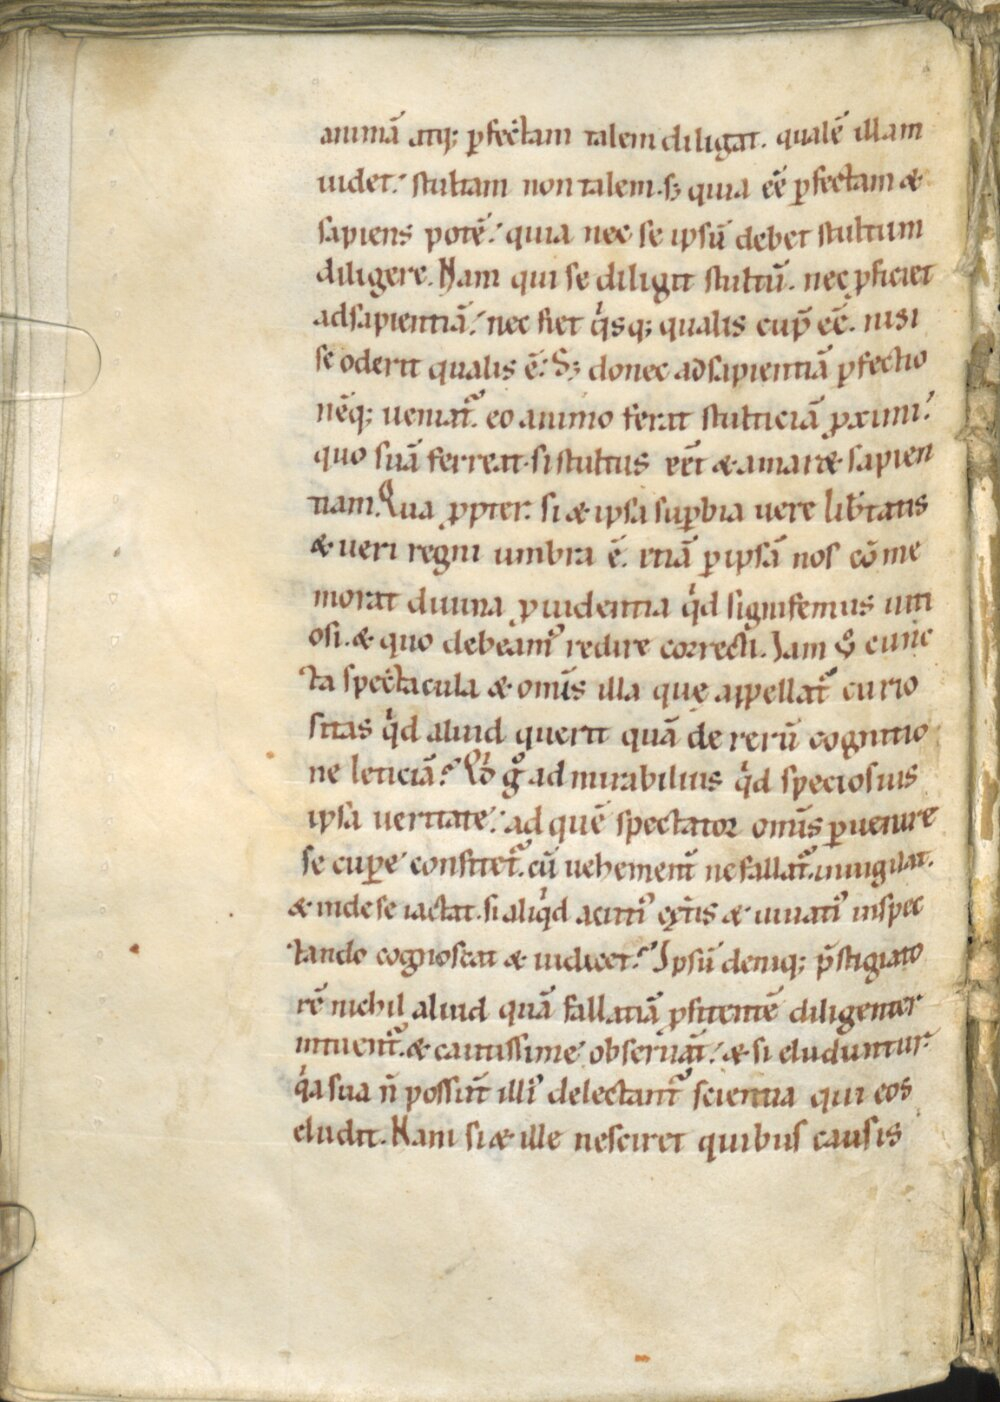 animā atq; ꝑfectam talem diligat. qualē illam
uidet! stultam non talem. s; quia eē ꝑfectam &
sapiens potē! quia nec se ipsū debet stultum
diligere. Nam qui se diligit stultū. nec ꝓficiet
adsapientiā! nec fiet q̇sq; qualis cup̄ eē. nisi
se oderit qualis ē! S; donec adsapientiā ꝑfectio
nēq; ueniat᷑. eo animo ferat stulticiā ꝓximi!
quo suā ferreat. si stultus eēt & amaret sapien
tiam. Qua ꝓpter. si & ipsa suꝑbia uere lib̄tatis
& ueri regni umbra ē. etiā ꝑ ipsā nos cōme
morat diuina ꝓuidentia q̇d signifemus uiti
osi. & quo debeamꝰ redire correcti. Iam ů cunc
ta spectacula & omīs illa quę appellat᷑ curio
sitas q̇d aliud querit quā de rerū cognitio
ne leticiā? Qḋ g̊ admirabilius q̇d speciosius
ipsa ueritate! ad quē spectator omīs ꝑuenire
se cuꝑe confitet᷑. cū uehement̄ ne fallat᷑. inuigilat.
& inde se iactat. si aliq̇d acutiꝰ cęt̄is & uiuatiꝰ inspec
tando cognoscat & iudicet? Ipsū deniq; p̄stigiato
rē nichil aliud quā fallatiā ꝓfitentē diligenter
intuent᷑. & cautissime obseruāt! & si eluduntur.
q̇a sua n̄ possūt illiꝰ delectant᷑ scientia qui eos
eludit. Nam si & ille nesciret quibus causis